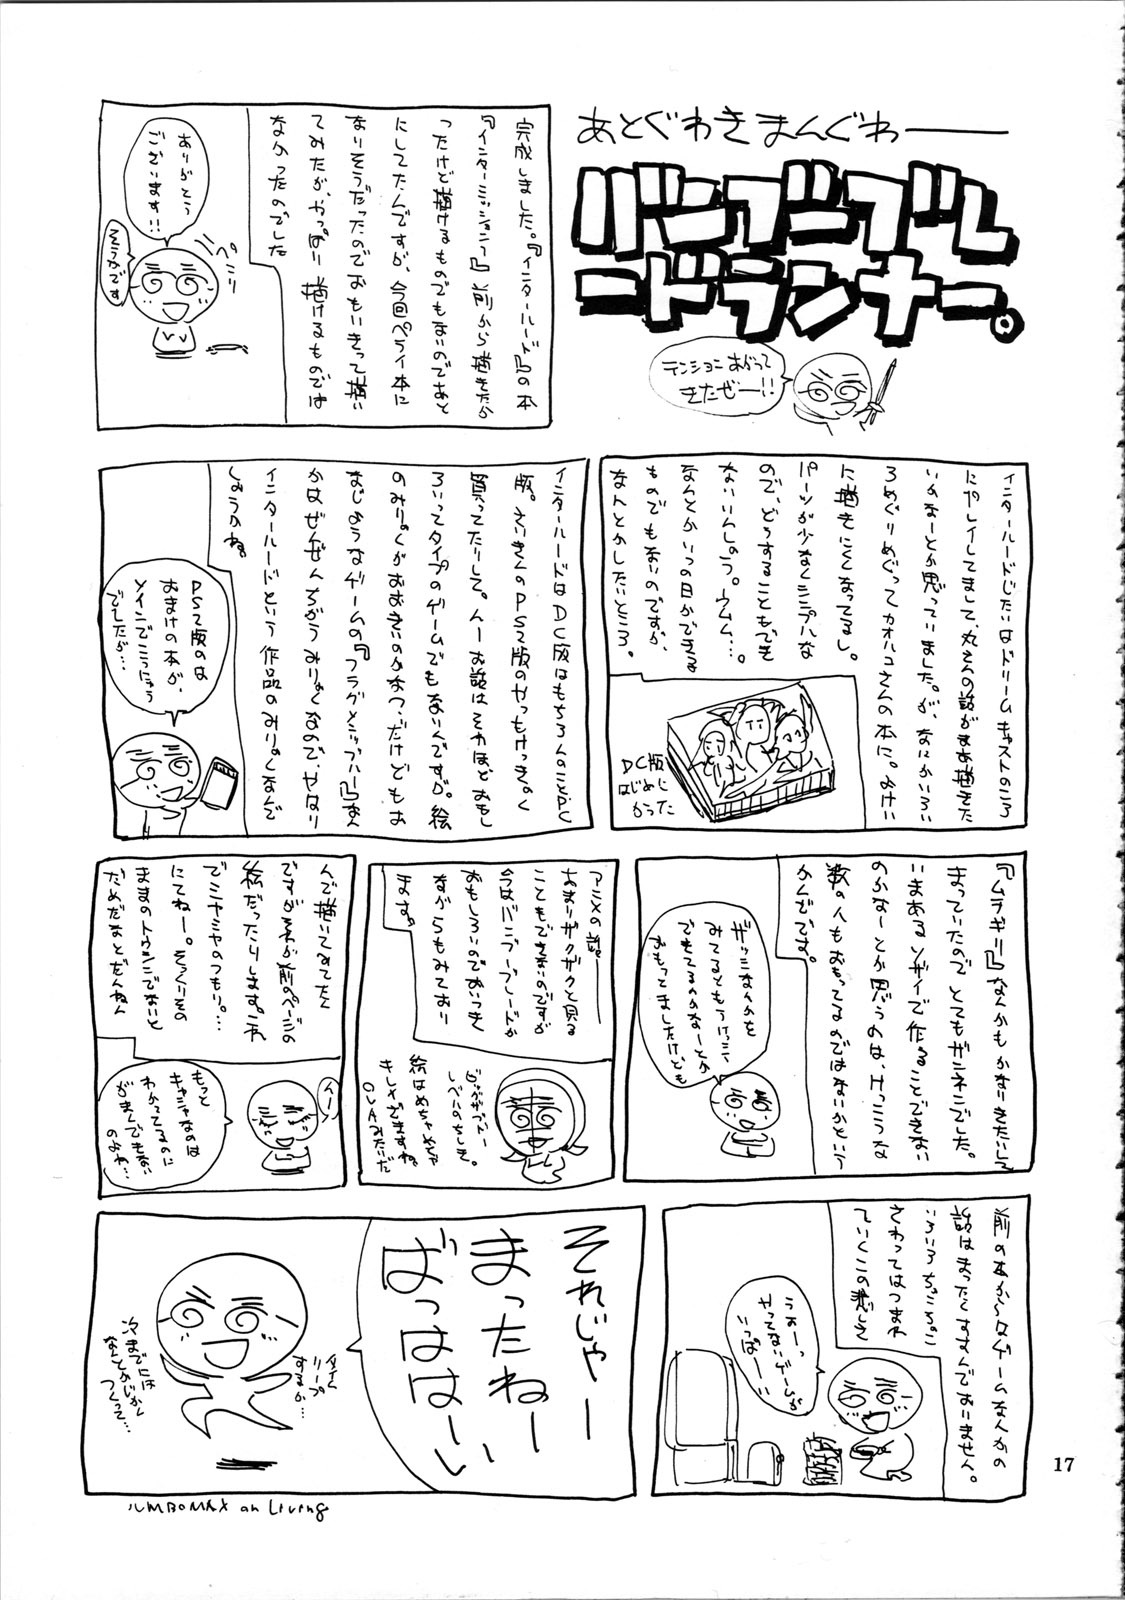 あとぐわきまんぐわー
バンブーブレ
ードランナー。
テンションあがって
きたぜー!!
完成しました。『インタールード』の本
『インターミッショニー』前から描きたか
ったけど描けるものでもないのであと
にしてたんですが、今回ペライ本に
なりそうだったのでおもいきって描い
てみたが、やっぱり描けるものでは
なかったのでした
ありがとう
ございます!!
ペこり
そうかです
インタールードじたいはドリームキャストのころ
にプレイしてまして、丸さんの話がまあ描きた
いかなーとか思っていました。が、なにかいろい
ろめぐりめぐってカオルコさんの本に。
に描きにくくなってるし。
パーツが少なくシンプルな
ので、どうすることもでき
ないいんしょう。ウムム…。
なんとかいつの日かできる
ものでもないのですが、
なんとかしたいところ。
DC版
はじめに
かった
インタールードはDC版はもちろんのことPC
版。さいきんのPS2版のやつもけっきょく
買ってたりして。んー お話はそれほどおもし
ろいってタイプのゲームでもないんですが。絵
のみりょくがおおきいのかなつ、だけどもお
なじようなゲームの『フラグとニップル』なん
かはぜんぜんちがうみりょくなので、やはり
インタールードという作品のみりょくなんで
しょうかね。
PS2版のは
おまけの本が、
メインでこうにゅう
でしたが…
『ムラギリ』なんかもかなりきたいして
まっていたので とてもザンネンでした。
いまあるソザイで作ることできない
のかなーとか思うのは、けっこうな
数の人もおもってるのではなかろうかという
かんじです。
みてるともうけっこう
できてるのかなーとか
おもってましたけども
アニメの話。
あまりザクザクと見る
こともできないのですが
今はバンブーブレードが
おもしろいのでおいつき
ながらもみており
ます。
レベルのちしき。
絵はめちゃめちゃ
きしれいですね。
OVAみたいだ
んで描いてみてたん
ですがそれが前のページの
絵だったりします。これ
でミヤミヤのつもり。…
にてねー。そっくりその
ままのトウシンでないと
だめだなとだんねん
んー
もっと
キャシャなのは
わかってるのに
がまんできない
のよね…
前の本からはゲームなんかの
話はまったくすすんでおりません。
いろいろちょこちょこ
さわってはつまれ
ていくこの悲しさ
うおーっ
やってないゲームが
いっぱーい
それじゃー
まったねー
ばっはは～い
タイム
リープ
するか…
次までには
なんとかじかん
つくって…
ルMBOMAX on Living
17